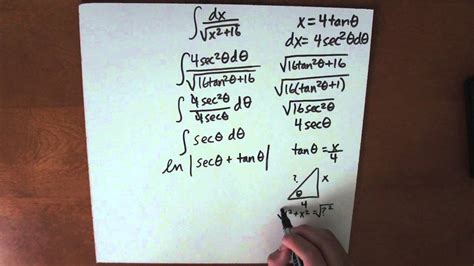 ∫ dx/√(x²+16)
∫ 4sec²θdθ/√(16tan²θ+16)
∫ 4sec²θ/4secθ dθ
∫ secθ dθ
ln |secθ + tanθ|
x = 4tanθ
dx = 4sec²θdθ
√(16tan²θ+16)
√(16(tan²θ+1))
√(16sec²θ)
4secθ
tanθ = x/4
? x
θ
4
+ x² = √?²